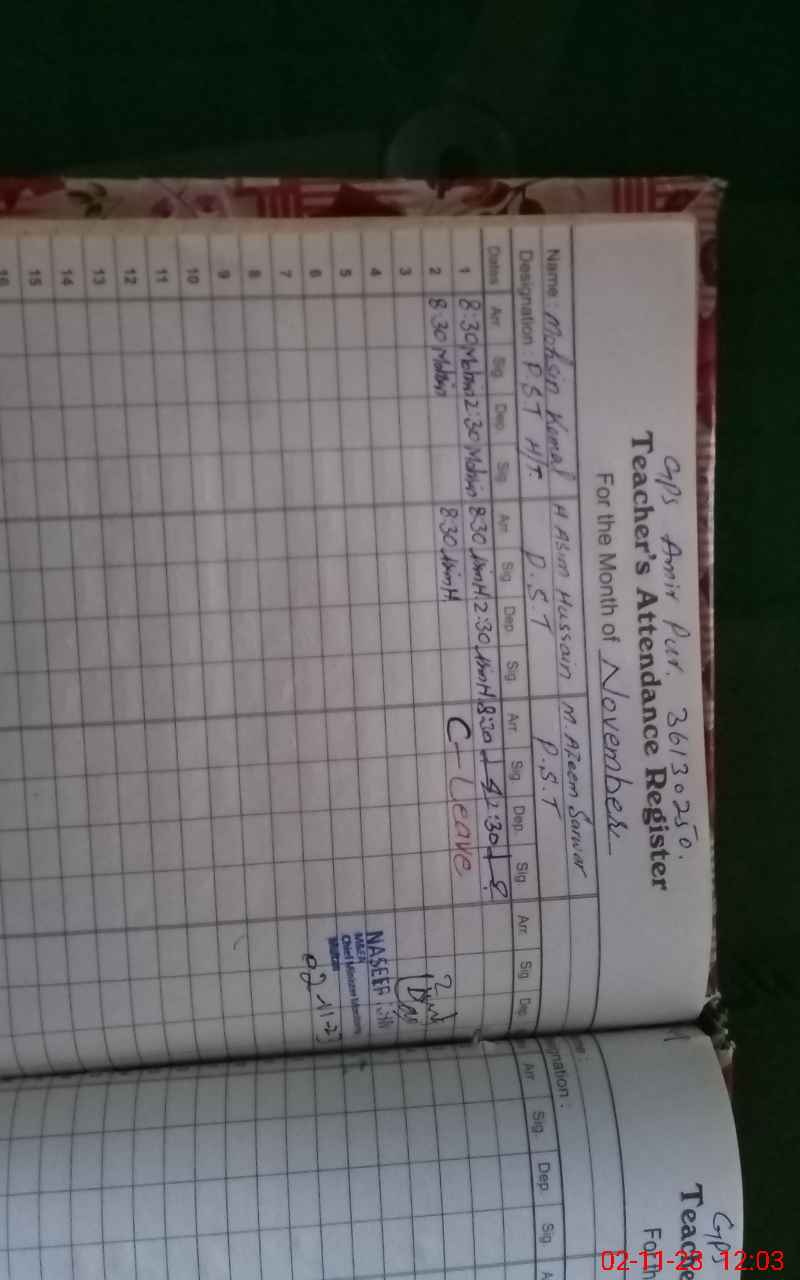 GPS Amir Pur. 36130250.
Teacher's Attendance Register
For the Month of November
Name : Mohsin Kemal H Asim Hussain M. Azeem Sarwar
Designation : P.S.T H/T. P.S.T P.S.T
Dates Arr. Sig. Dep. Sig. Arr. Sig. Dep. Sig. Arr. Sig. Dep. Sig. Arr. Sig. Dep.
1 8:30 Mohsin 2:30 Mohsin 8:30 AsimH 2:30 AsimH 8:30 2:30
2 8:30 Mohsin 8:30 AsimH C-Leave
3
4
5
6
7
8
9
10
11
12
13
14
15
16
NASEER
M&EA
Chief Minister Monitoring
Multan
02-11-23
GPS
Teache
For th
me :
ignation :
Arr. Sig. Dep. Sig. A
02-11-23 12:03